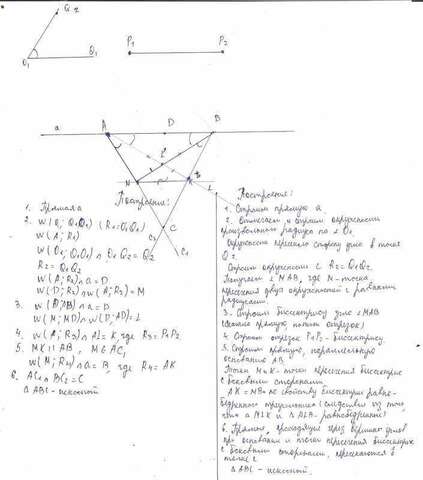 Q₂
O₁
Q₁
P₁
P₂
a
A
D
B
L'
N
K
L
C
C₂
C₁
Построение:
1. Прямая a
2. W(O₁; O₁Q₁) (R₁=O₁Q₁)
W(A; R₁)
W(O₁; O₁Q₁) ∩ O₁Q₂ = Q₂
R₂ = Q₁Q₂
W(A; R₁) ∩ a = D
W(D; R₂) ∩ W(A; R₁) = M
3. ∩ a = D
W(M; MD) ∩ W(D; AD) = L
4. W(A; R₃) ∩ AL = K, где R₃ = P₁P₂
5. MK ∥ AB, M ∈ AC₁
W(M; R₄) ∩ a = B, где R₄ = AK
6. AC₁ ∩ BC₂ = C
△ ABC - искомый.
Построения:
1. Строим прямую a
2. Отмечаем и строим окружности
произвольного радиуса на ∠ O₁.
Окружность пересекла сторону угла в точке
Q₂.
Строим окружность с R₂ = Q₁Q₂.
Получаем ∠ MAB, где N - точка
пересечения двух окружностей с равными
радиусами.
3. Строим биссектрису угла ∠ MAB
4. Строим отрезок P₁P₂ - биссектрису
5. Строим прямую, параллельную
основанию AB
Точки M и K - точки пересечения биссектрис
с боковыми сторонами.
AK = MB по свойству биссектрис равно-
бедренного треугольника (следствие из того,
что △ и △ ALB - равнобедренные)
6. Прямые, проходящие через вершины углов
при основании и точки пересечения биссектрис
с боковыми сторонами, пересекаются в
точке C
△ ABC - искомый.